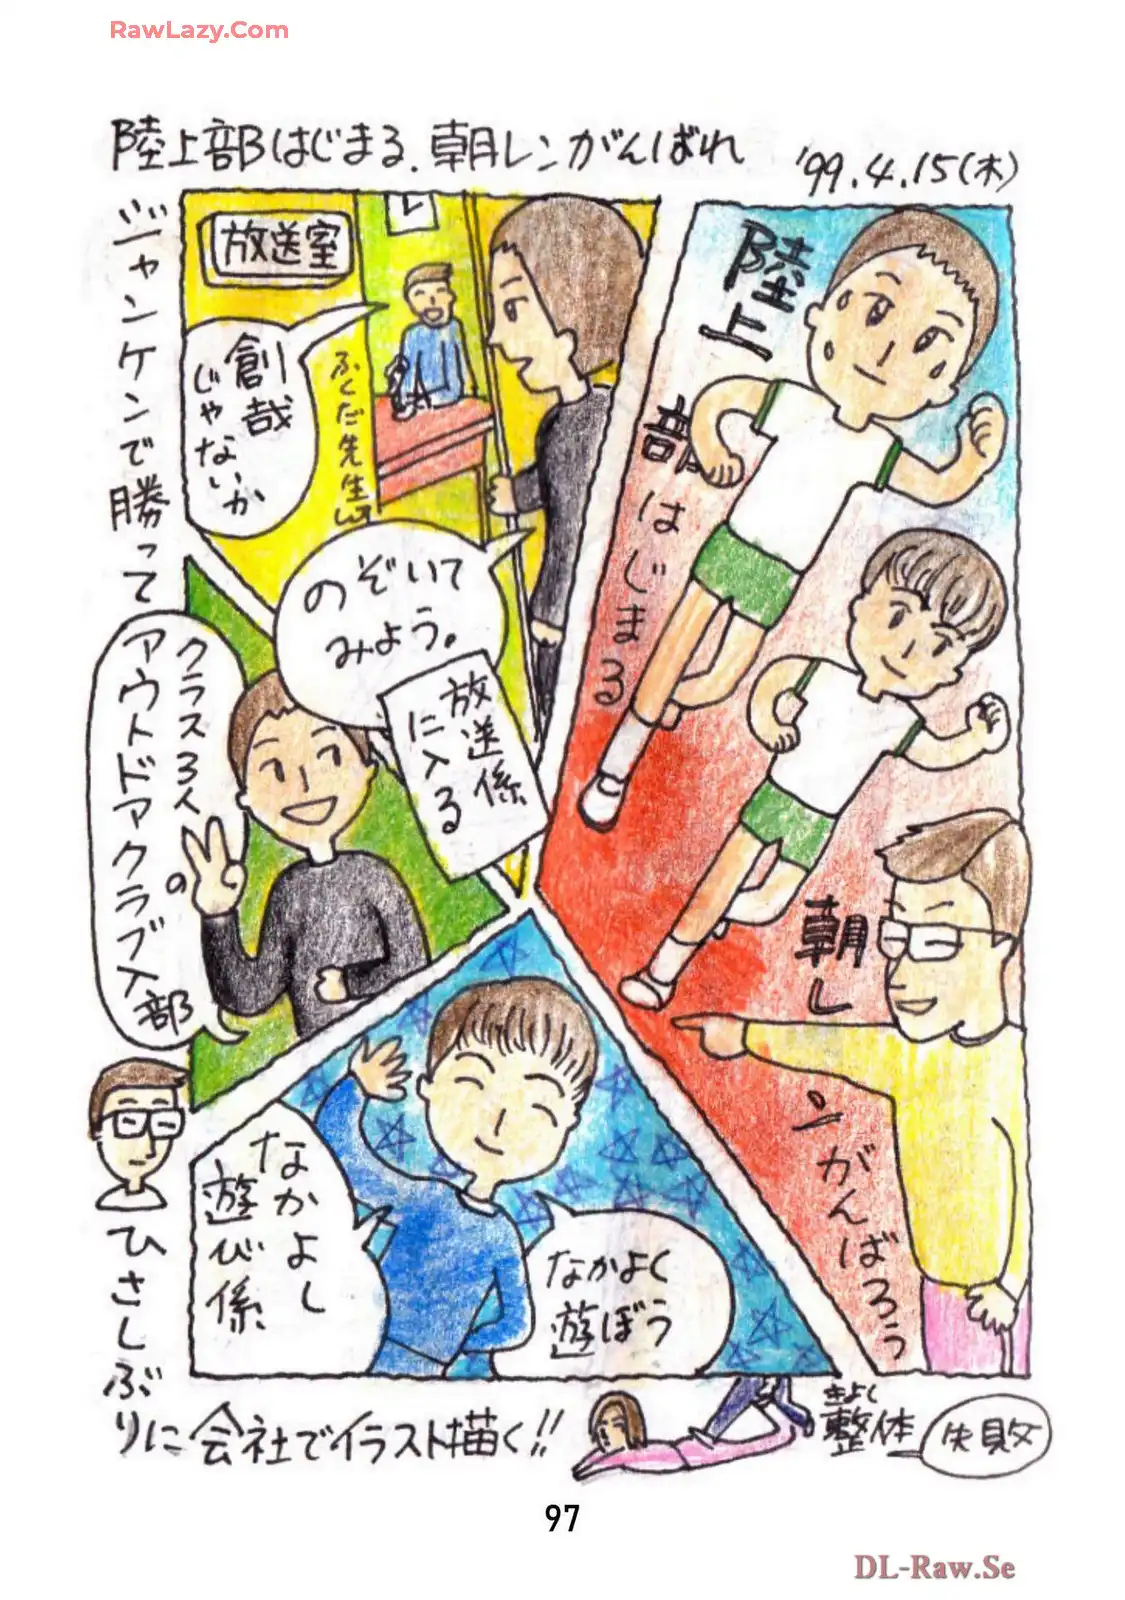 RawLazy.Com
陸上部はじまる.朝レンがんばれ
'99.4.15(木)
陸上
部はじまる
朝レ
ンがんばろう
放送室
創哉
じゃないか
ふくだ先生
のぞいて
みよう。
放送係
に入る
ジャンケンで勝って
クラス3人の
アウトドアクラブ入部
なかよし
遊び係
なかよく
遊ぼう
ひさしぶ
りに会社でイラスト描く!!
きよく
整体
失敗
97
DL-Raw.Se